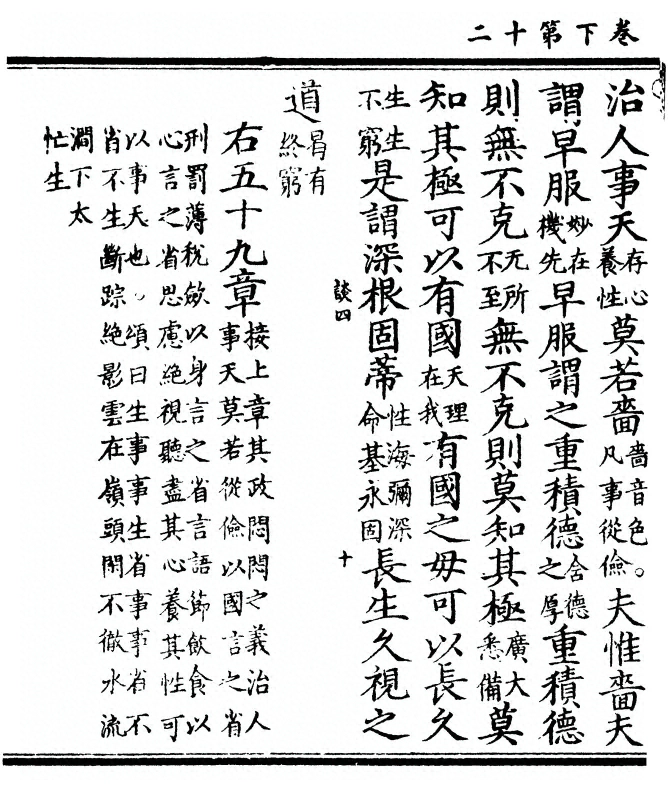 卷下第十二
治人事天存心養性莫若嗇嗇音色。凡事從儉夫惟嗇夫
謂早服妙在機先早服謂之重積德舍德之厚重積德
則無不克无所不至無不克則莫知其極廣大悉備莫
知其極可以有國天理在我有國之毋可以長久
生生不窮是謂深根固蒂性海彌深命基永固長生久視之
談四
十
道曷有終窮
右五十九章接上章其政悶悶之義治人事天莫若從儉以國言之省
刑罰薄稅斂以身言之省言語節飲食以
心言之省思慮絕視聽盡其心養其性可
以事天也。頌曰生事事生省事事省不
肖不生斷踪絕影雲在嶺頭閑不徹水流
澗下太
忙生